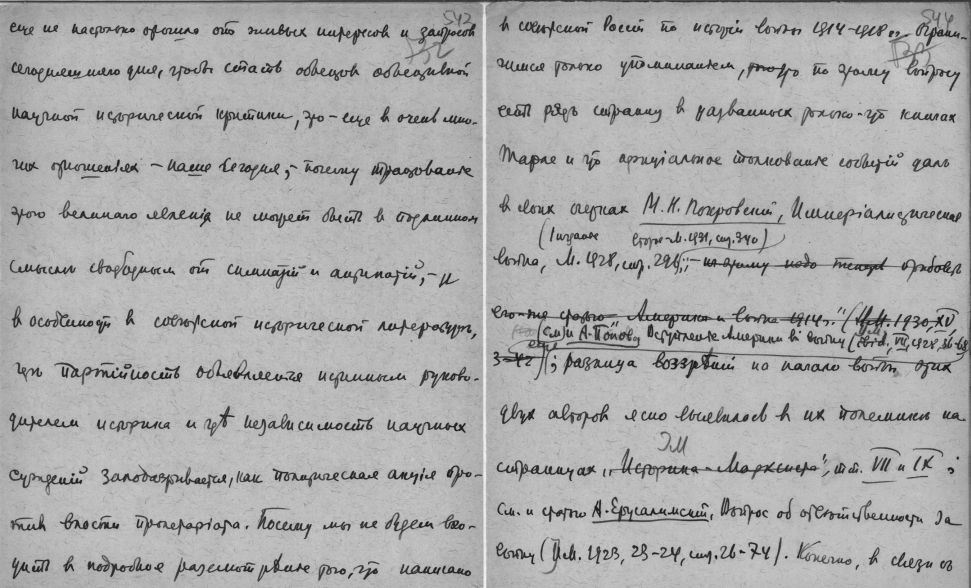 542
еще не настолько отошло от живых интересов и запросов
сегодняшняго дня, чтобы стать образцом объективной
научной исторической критики, это – еще в очень мно-
гих отношениях – наше сегодня, – почему трактование
этого великаго явленія не может быть в подлинном
смысле свободным от симпатій и антипатій, – и
в особенности в советской исторической литературе,
где партійность объявляется истинным руково-
дителем историка и где независимость научных
сужденій заподазривается, как политическая акція про-
тив власти пролетаріата. Посему мы не будем вхо-
дить в подробное разсмотрѣніе того, что написано
544
в советской Россіи по исторіи войны 1914-1918 г. Ограни-
чимся только упоминаніем, что по этому вопросу
есть ряд страниц в названных только-что книгах
Тарле и что офиціальное толкованіе событій дал
в своих очерках М. Н. Покровский, Имперіалистическая
(1 изданіе второе – М. 1931, стр. 340)
война, М. 1928, стр. 296;
его-же статью Америка и война 1914 г." (И.М. 1930, XV,
(см. и А. Попова Вступление Америки в войну
3-42); разница воззрѣній на начало войны этих
двух авторов ясно выявилось в их полемике на
ИМ
страницах „Историка-Марксиста", тт. VII и IX;
см. и статью А. Ерусалимский, Вопрос об ответственности за
войну (И.М. 1923, 23-24, стр. 26-74). Конечно, в связи с